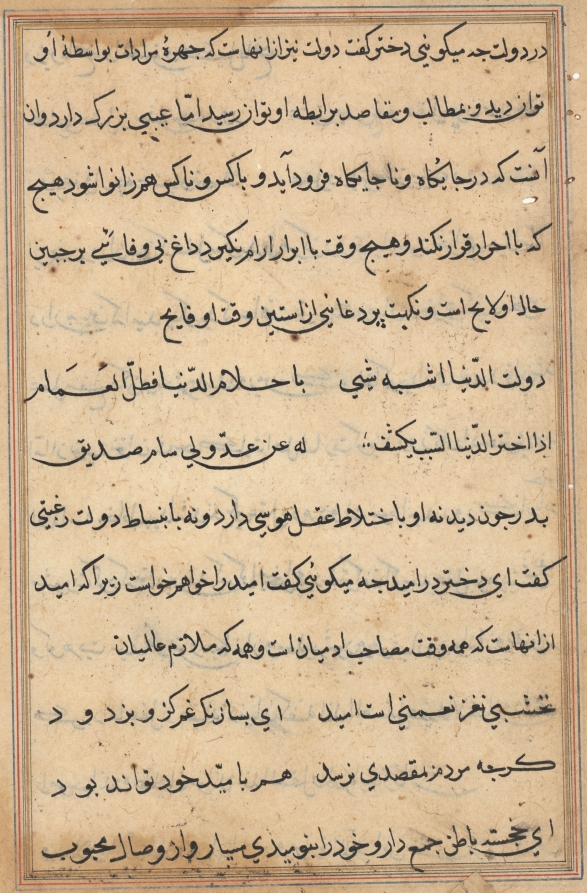 در دولت چه میگوئی دختر گفت دولت نیز ازانهاست که چهرهٔ مرادات بواسطهٔ او
توان دید و بمطالب و مقاصد برابطه او توان رسید امّا عیبی بزرک دارد وان
آنست که در جایگاه و ناجایگاه فرود آید و با کس و ناکس هم زانو شود هیچ
که با احرار قرار نکند و هیچ وقت با ابرار ارام نکیرد داغ بی وفائیی بر جبین
حال او لایح است و نکهت از استین وقت او فایح
دولت الدّنیا اشبه شیی باحلام الدّنیا فظلّ الغمام
اذا اختبر الدّنیا لبیب تکشفت له عن عدّو لی صدیق
پدر چون دید نه او باختلاط عقل هوسی دارد و نه بانبساط دولت رغبتی
کفت ای دختر در امید چه میکوئی کفت امید را خواهم خواست زیراکه امید
ازانهاست که همه وقت مصاحب ادمیان است و همه که ملازم عالمیان
نخشبی نغز نعمتی است امید ای بسا زنک غم کزو بزدود
کرچه مردم بمقصدی نرسد هم بامیّد خود تواند بود
ای خجسته باطن جمع دار و خود را بنومیدی مسپار و از وصال محبوب